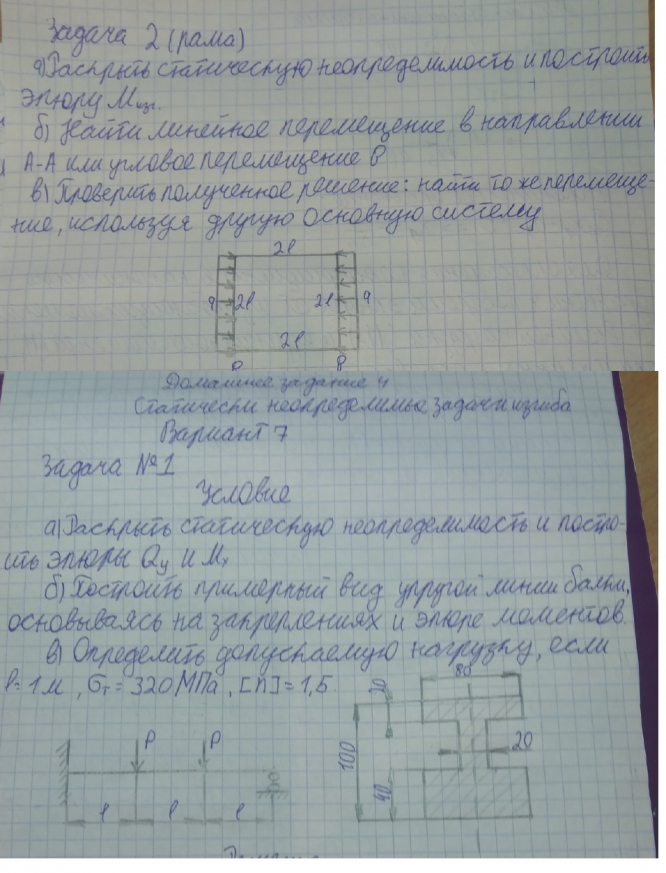 Задача 2 (рама)
а) Раскрыть статическую неопределимость и построить
эпюру Мизг.
б) Найти линейное перемещение в направлении
А-А или угловое перемещение В
в) Проверить полученное решение: найти то же перемеще-
ние, используя другую основную систему
2l
q 2l 2l q
2l
Домашнее задание 4
Статически неопределимые задачи изгиба
Вариант 7
Задача №1
Условие
а) Раскрыть статическую неопределимость и постро-
ить эпюры Qy и Мх
б) Построить примерный вид упругой линии балки,
основываясь на закреплениях и эпюре моментов.
в) Определить допускаемую нагрузку, если
l=1м, σт=320МПа, [n]=1,5
80
20
P P
100
20
40
l l l